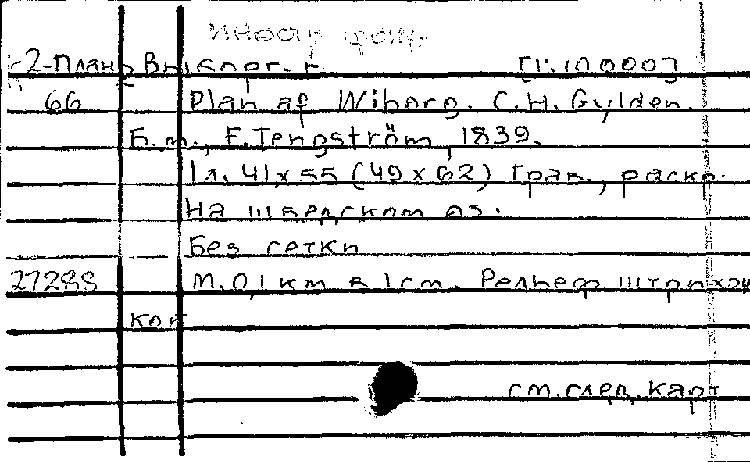 К2-План Выборг. г. [1:10 000]
66 Plan af Wiborg. C.H. Gylden.
Б.м., F. Tengström, 1839.
1л. 41x55 (49x62) Грав., раскр.
На шведском яз.
Без сетки
27288 М. 0,1 км в 1см. Рельеф штрихами
коп
см. след. карт